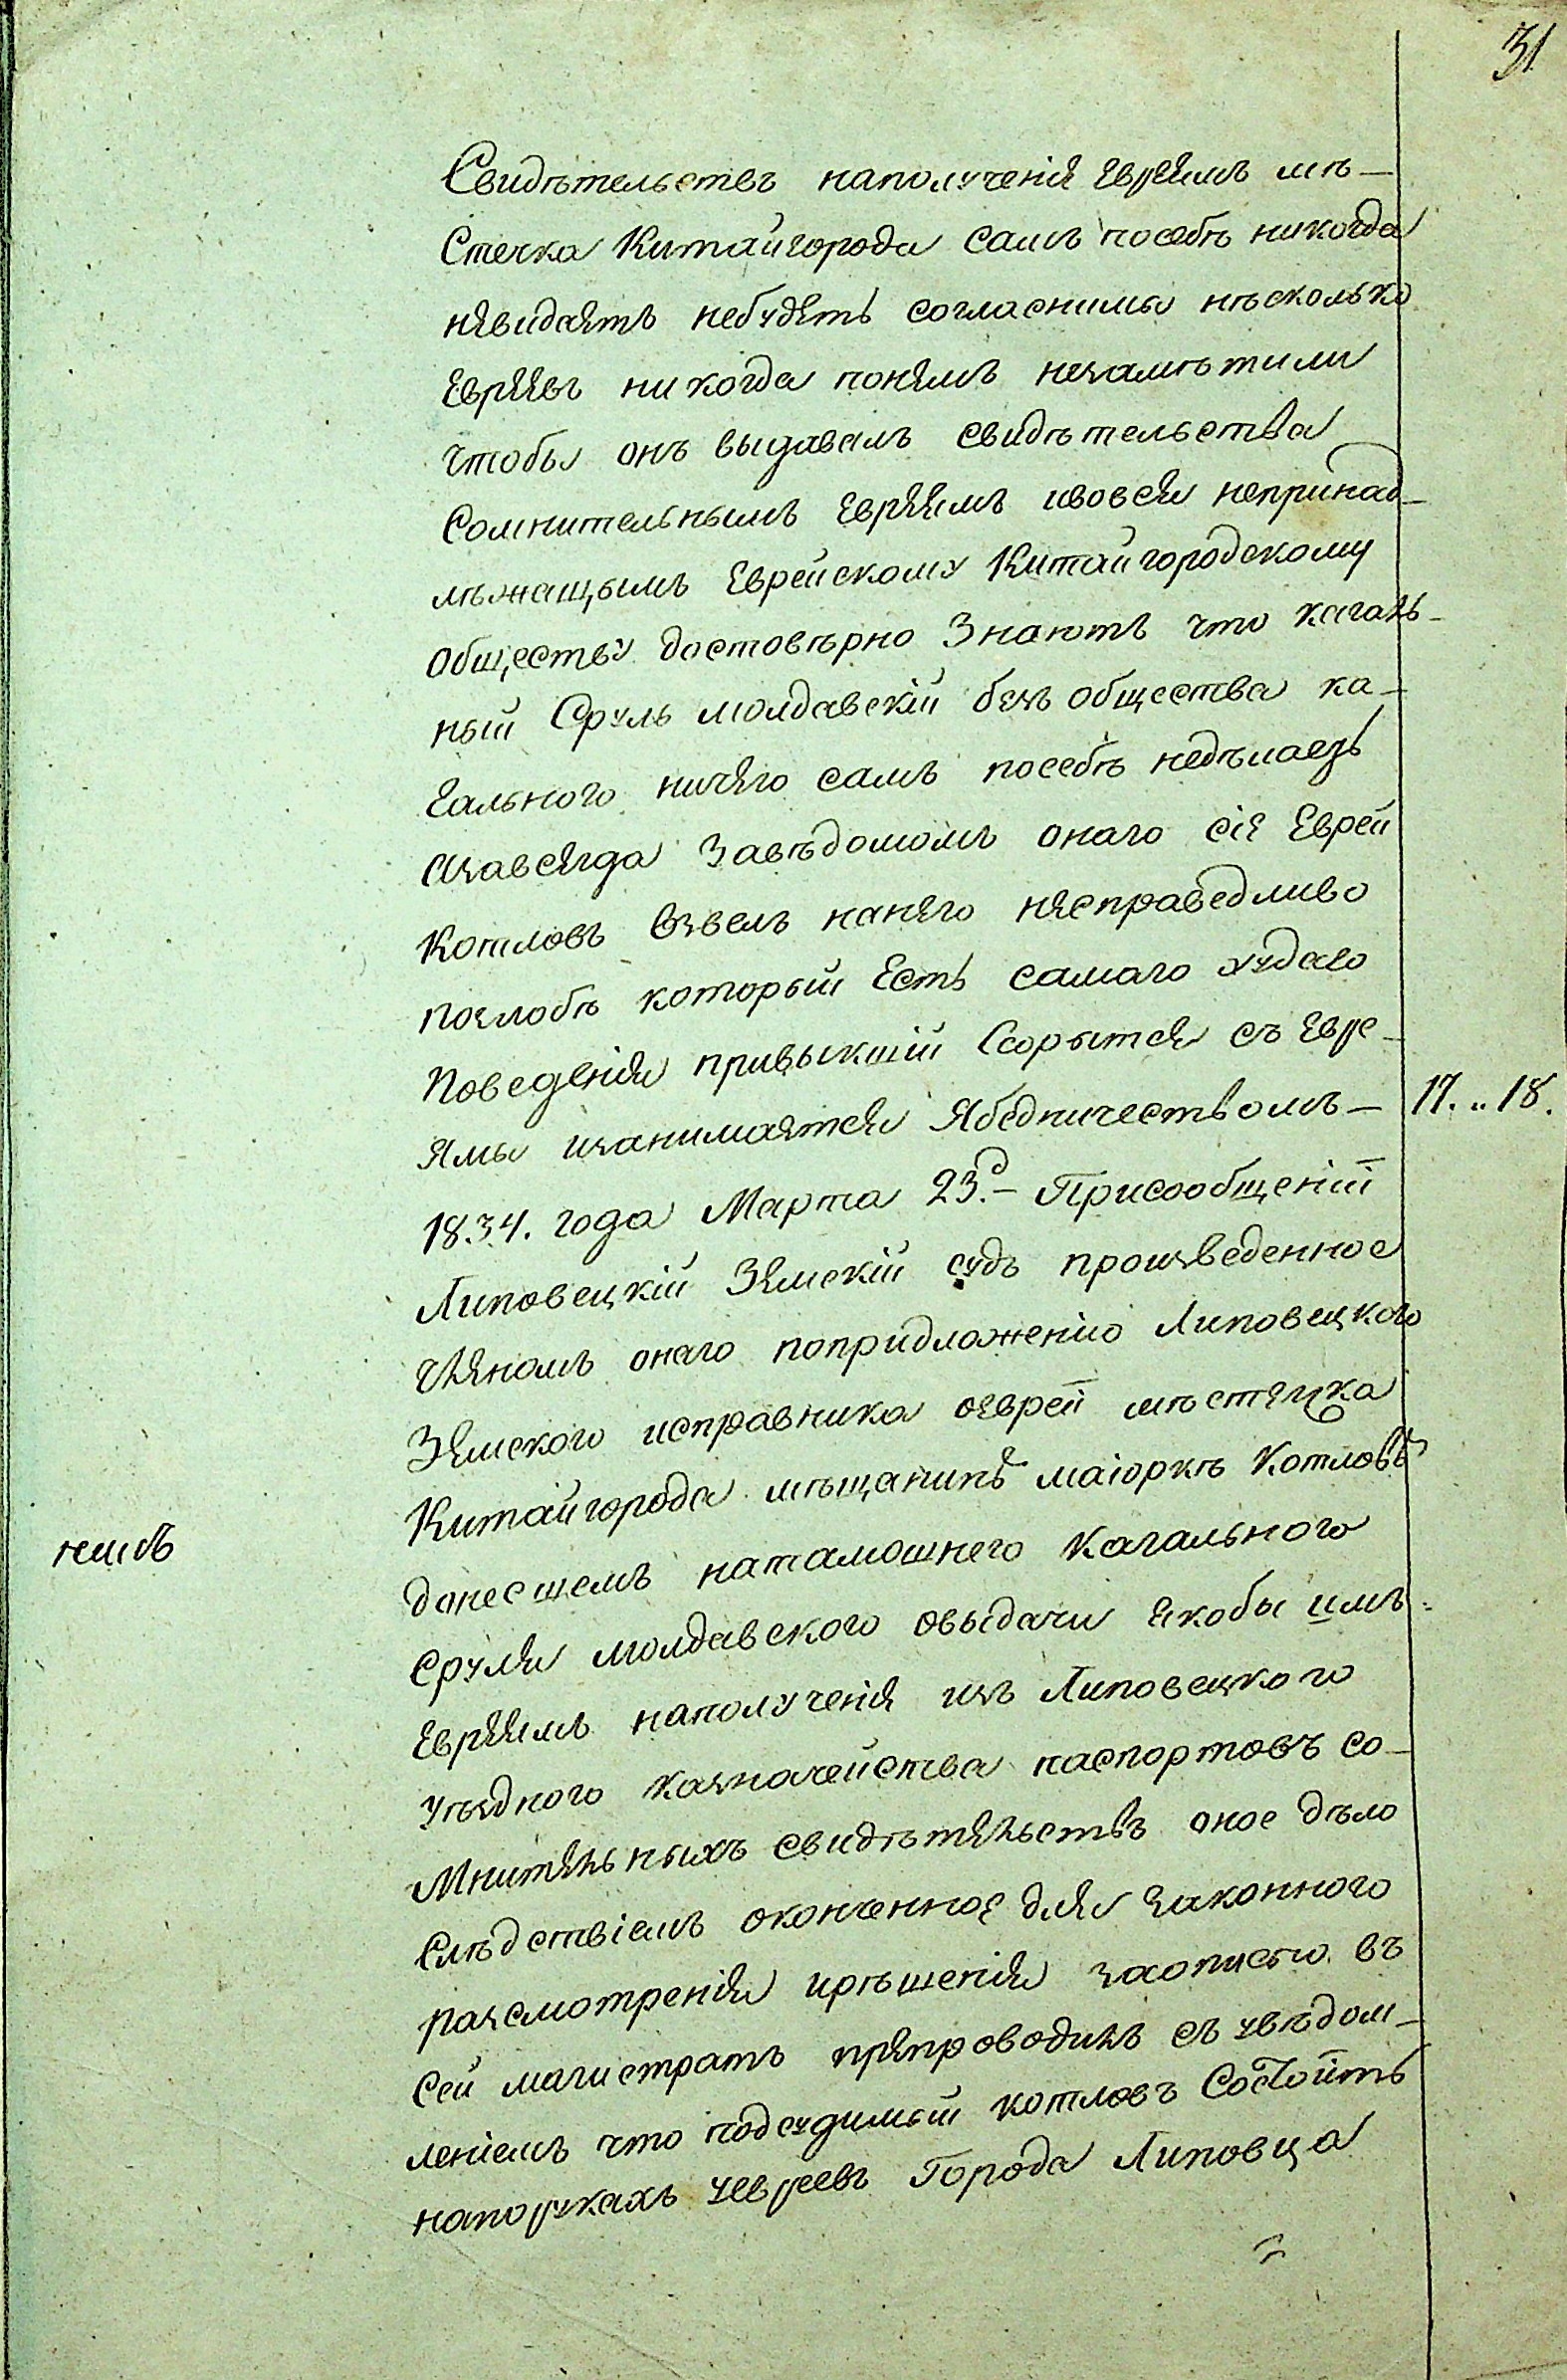 31
Свидѣтельствъ наполученія Евреямъ мѣ-
Стечка Китайгорода самъ посебѣ никогда
невидаетъ небудетъ согласнимы нѣсколько
Евреевъ никогда понемъ незамѣтили
чтобы онъ выдавалъ свидѣтельства
Сомнительнымъ Евреямъ ивовся непринад-
лѣжащымъ Еврейскому Китайгородскому
обществу достовѣрно Знаютъ что кагаль-
ный Сруль молдавскій безъ общества ка-
гального ничего самъ посебѣ недѣлаетъ
азавсегда Завѣдомомъ онаго сіе Еврей
Котловъ взвелъ нанего несправедливо
позлобѣ который Есть самаго худаго
Поведенія привыкшій Ссорытся съ Евре-
ямы изанимается Ябедничествомъ- 17. .. 18.
18.34. года Марта 23.д- Присообщеніи
Липовецкій Земскій судъ произведенное
Членомъ онаго попридложенію Липовецкого
Земского исправника оеврей мѣстечка
Китайгорода мѣщанинѣ маіоркѣ Котловѣ
донесшемъ натамошнего Кагального
нешлъ
Сруля молдавского овыдачи якобы имъ
Евреямъ наполученія изъ Липовецкого
уѣздного казначейства паспортовъ со-
мнительныхъ свидѣтельствъ оное дѣло
Слѣдствіемъ оконченное для законного
разсмотренія ирѣшенія заописью въ
Сей магистратъ препроводилъ съ увѣдом-
леніемъ что подсудимый котловъ Состоитъ
напорукахъ уевреевъ Города Липовца